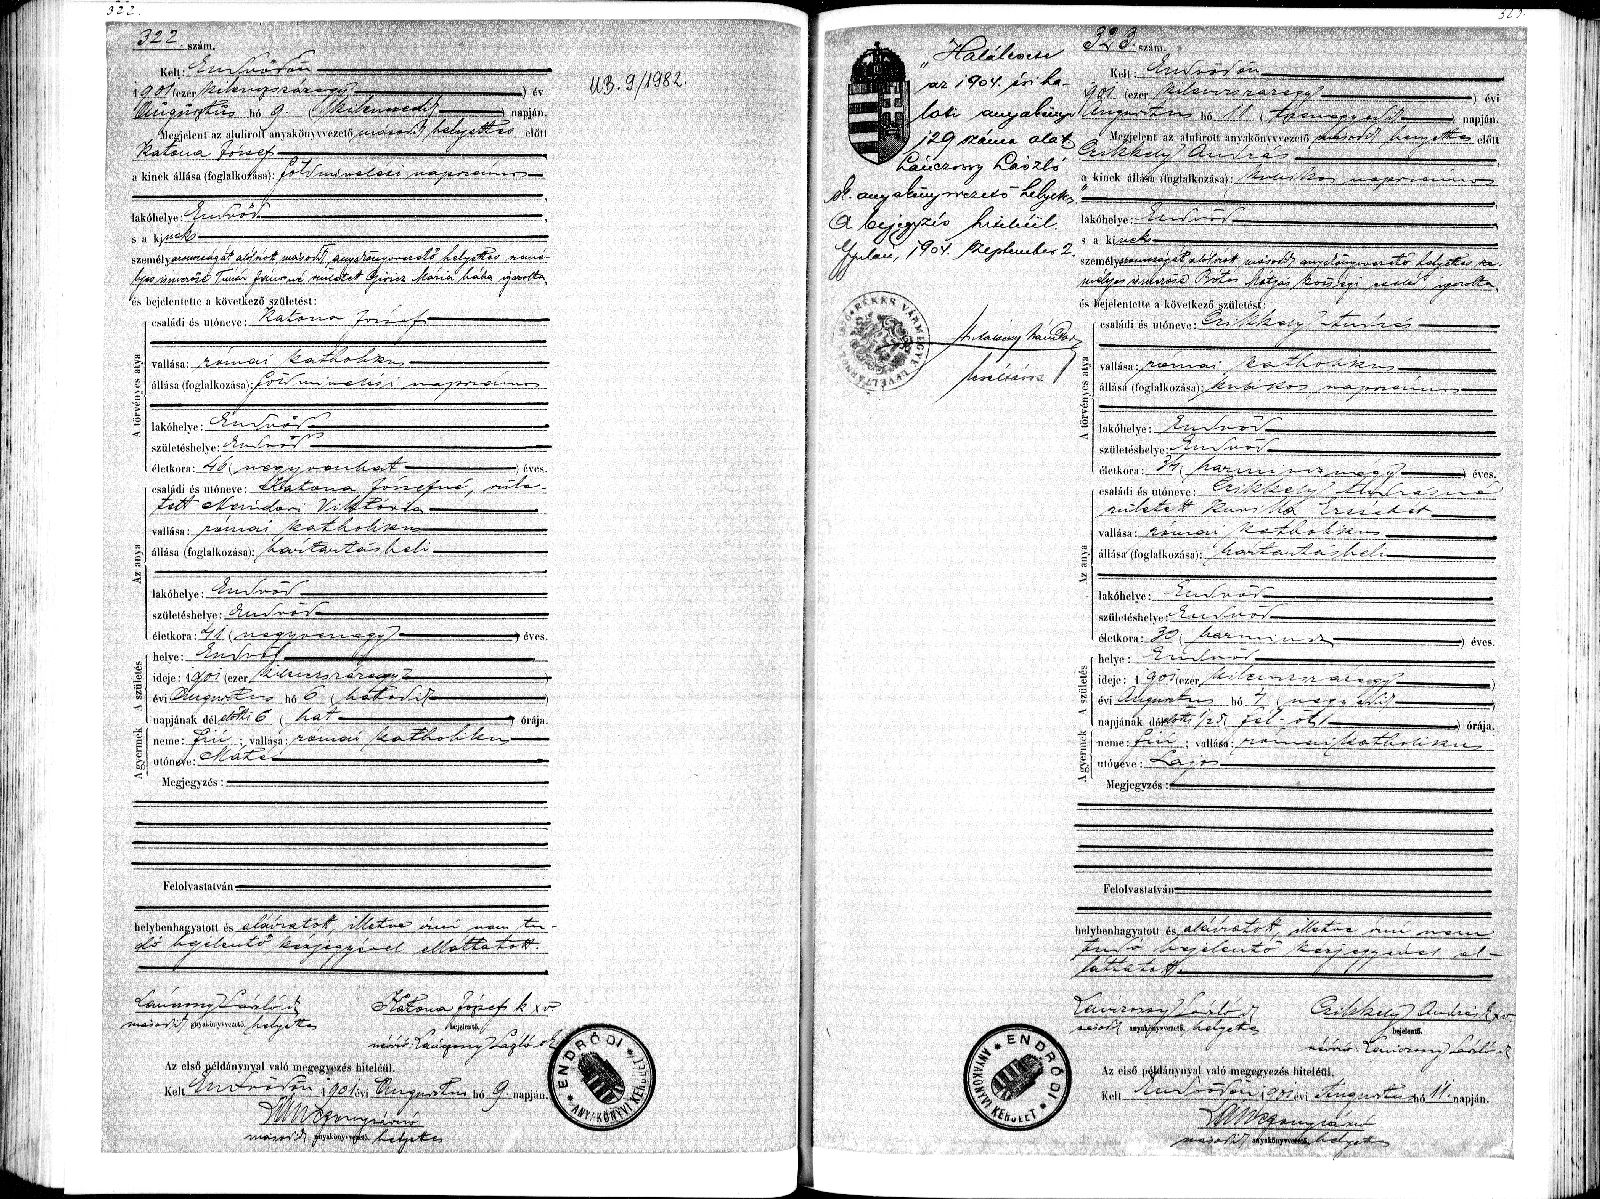 322.
322. szám.
Kelt: Endrődön
1901 (ezer kilenczszázegy) év
Augusztus hó 9. (kilenczedik) napján.
Megjelent az alulirott anyakönyvvezető második helyettes előtt
Katona József
a kinek állása (foglalkozása): földmivelési napszámos
lakóhelye: Endrőd
s a kinek
személyazonosságát alólirott második anyakönyvvezető helyettes
Mária bába igazolta,
és bejelentette a következő születést:
A törvényes atya
családi és utóneve: Katona József
vallása: római katholikus
állása (foglalkozása): földmivelési napszámos
lakóhelye: Endrőd
születéshelye: Endrőd
életkora: 46 (negyvenhat) éves.
Az anya
családi és utóneve: Katona Józsefné, szüle-
tett Viktória
vallása: római katholikus
állása (foglalkozása): háztartásbeli
lakóhelye: Endrőd
születéshelye: Endrőd
életkora: 41 (negyvenegy) éves.
A születés
helye: Endrőd
ideje: 1901 (ezer kilenczszázegy)
évi Augusztus hó 6 (hatodik)
napjának dél előtti 6 (hat) órája.
A gyermek
neme: fiú; vallása: római katholikus
utóneve: Máté
Megjegyzés:
Felolvastatván
helybenhagyott és aláiratott, illetve irni nem tu-
dó bejelentő kézjegyével elláttatott.
László
második anyakönyvvezető helyettes
Katona József k x v
bejelentő.
László
Az első példánynyal való megegyezés hiteléül.
Kelt Endrődön, 1901 évi Augusztus hó 9. napján.
második anyakönyvvezető helyettes
ENDRŐDI ANYAKÖNYVI KERÜLET
U.B. 9/1982.
323.
„Halálesete
az 1904. évi ha-
loti anyakönyv
129 száma alatt
László
h. anyakönyvvezető helyettes
A bejegyzés hiteléül.
Gyulán, 1904. szeptember 2.
BÉKÉS VÁRMEGYE LEVÉLTÁRNOKA
levéltárnok
323. szám.
Kelt: Endrődön
1901 (ezer kilenczszázegy) évi
Augusztus hó 11 (tizenegyedik) napján.
Megjelent az alulirott anyakönyvvezető második helyettes előtt
Czikkely András
a kinek állása (foglalkozása): kubikos napszámos
lakóhelye: Endrőd
s a kinek
személyazonosságát alólirott második anyakönyvvezető helyettes sze-
mélyes ismerőse Mátyás községi igazolta,
és bejelentette a következő születést:
A törvényes atya
családi és utóneve: Czikkely András
vallása: római katholikus
állása (foglalkozása): kubikos napszámos
lakóhelye: Endrőd
születéshelye: Endrőd
életkora: 34 (harmincznégy) éves.
Az anya
családi és utóneve: Czikkely Andrásné
született Erzsébet
vallása: római katholikus
állása (foglalkozása): háztartásbeli
lakóhelye: Endrőd
születéshelye: Endrőd
életkora: 30 (harmincz) éves.
A születés
helye: Endrőd
ideje: 1901 (ezer kilenczszázegy)
évi Augusztus hó
napjának dél órája.
A gyermek
neme: fiú; vallása: római katholikus
utóneve: Lajos
Megjegyzés:
Felolvastatván
helybenhagyott és aláiratott, illetve irni nem
tudó bejelentő kézjegyével el-
láttatott.
László
második anyakönyvvezető helyettes
Czikkely András k x v
bejelentő.
László
Az első példánynyal való megegyezés hiteléül.
Kelt Endrődön 1901 évi Augusztus hó 11. napján.
második anyakönyvvezető helyettes
ENDRŐDI ANYAKÖNYVI KERÜLET